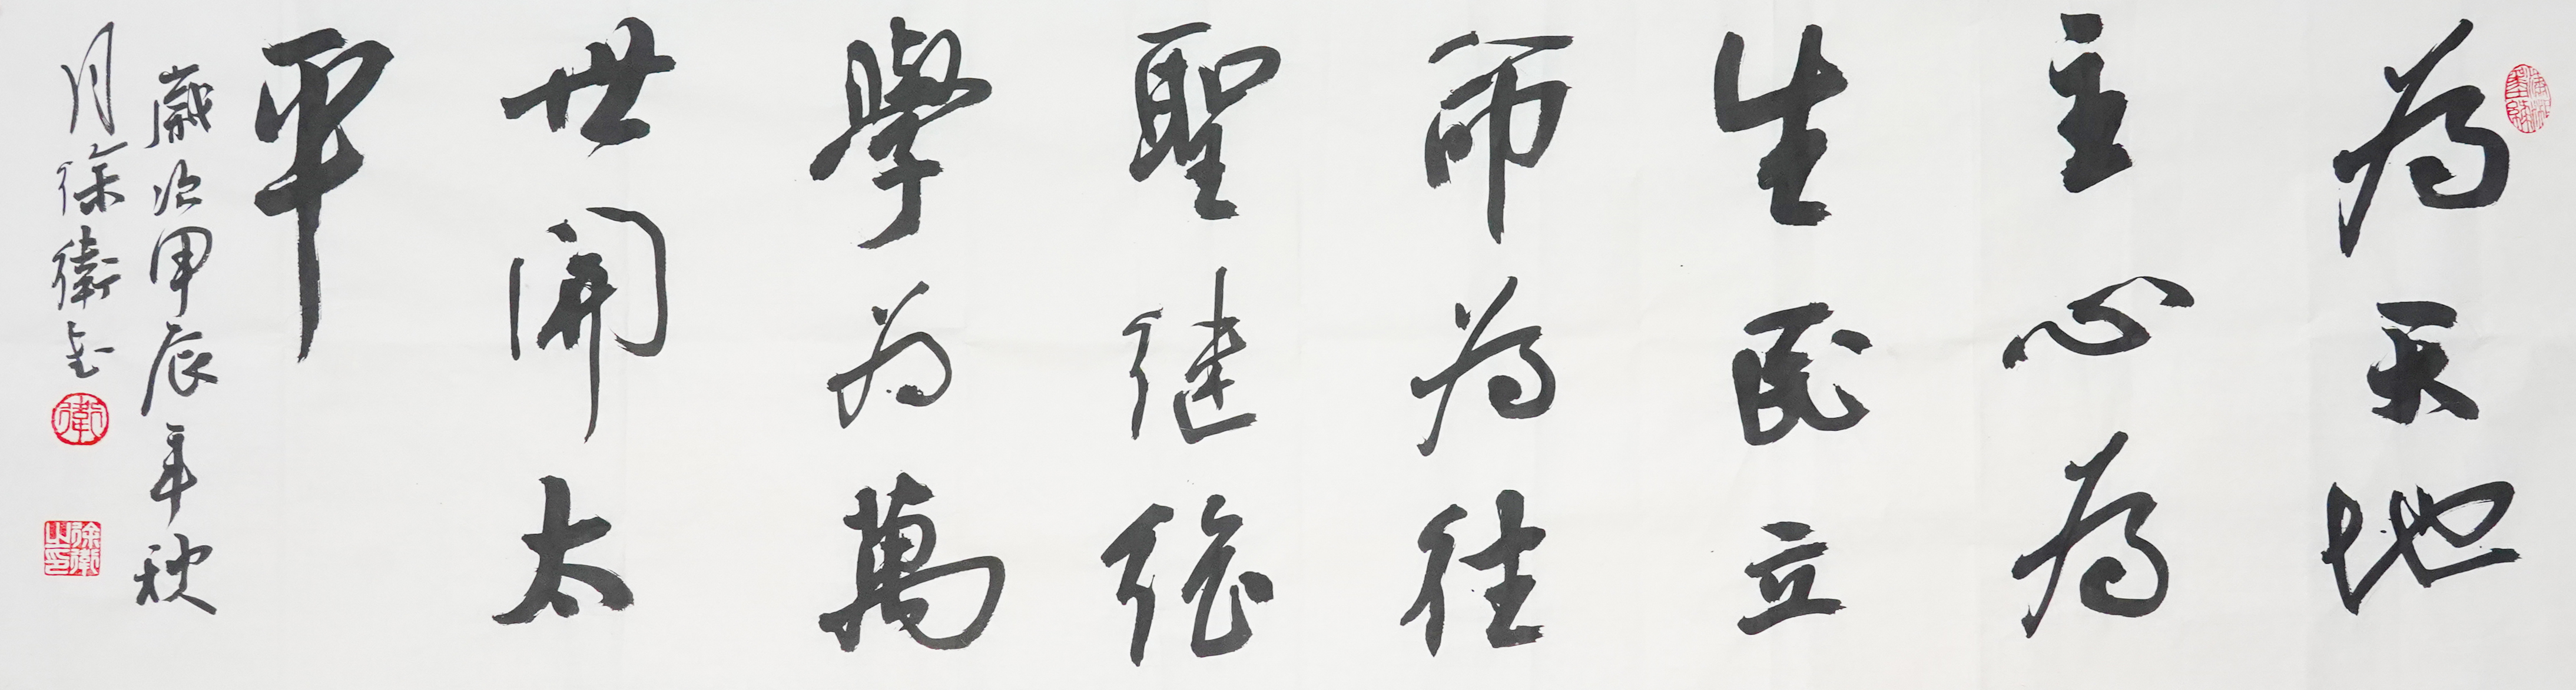 為天地
立心為
生民立
命為往
聖继絕
學為萬
世開太
平
歲次甲辰年秋
月徐衛書
衛
徐衛之印